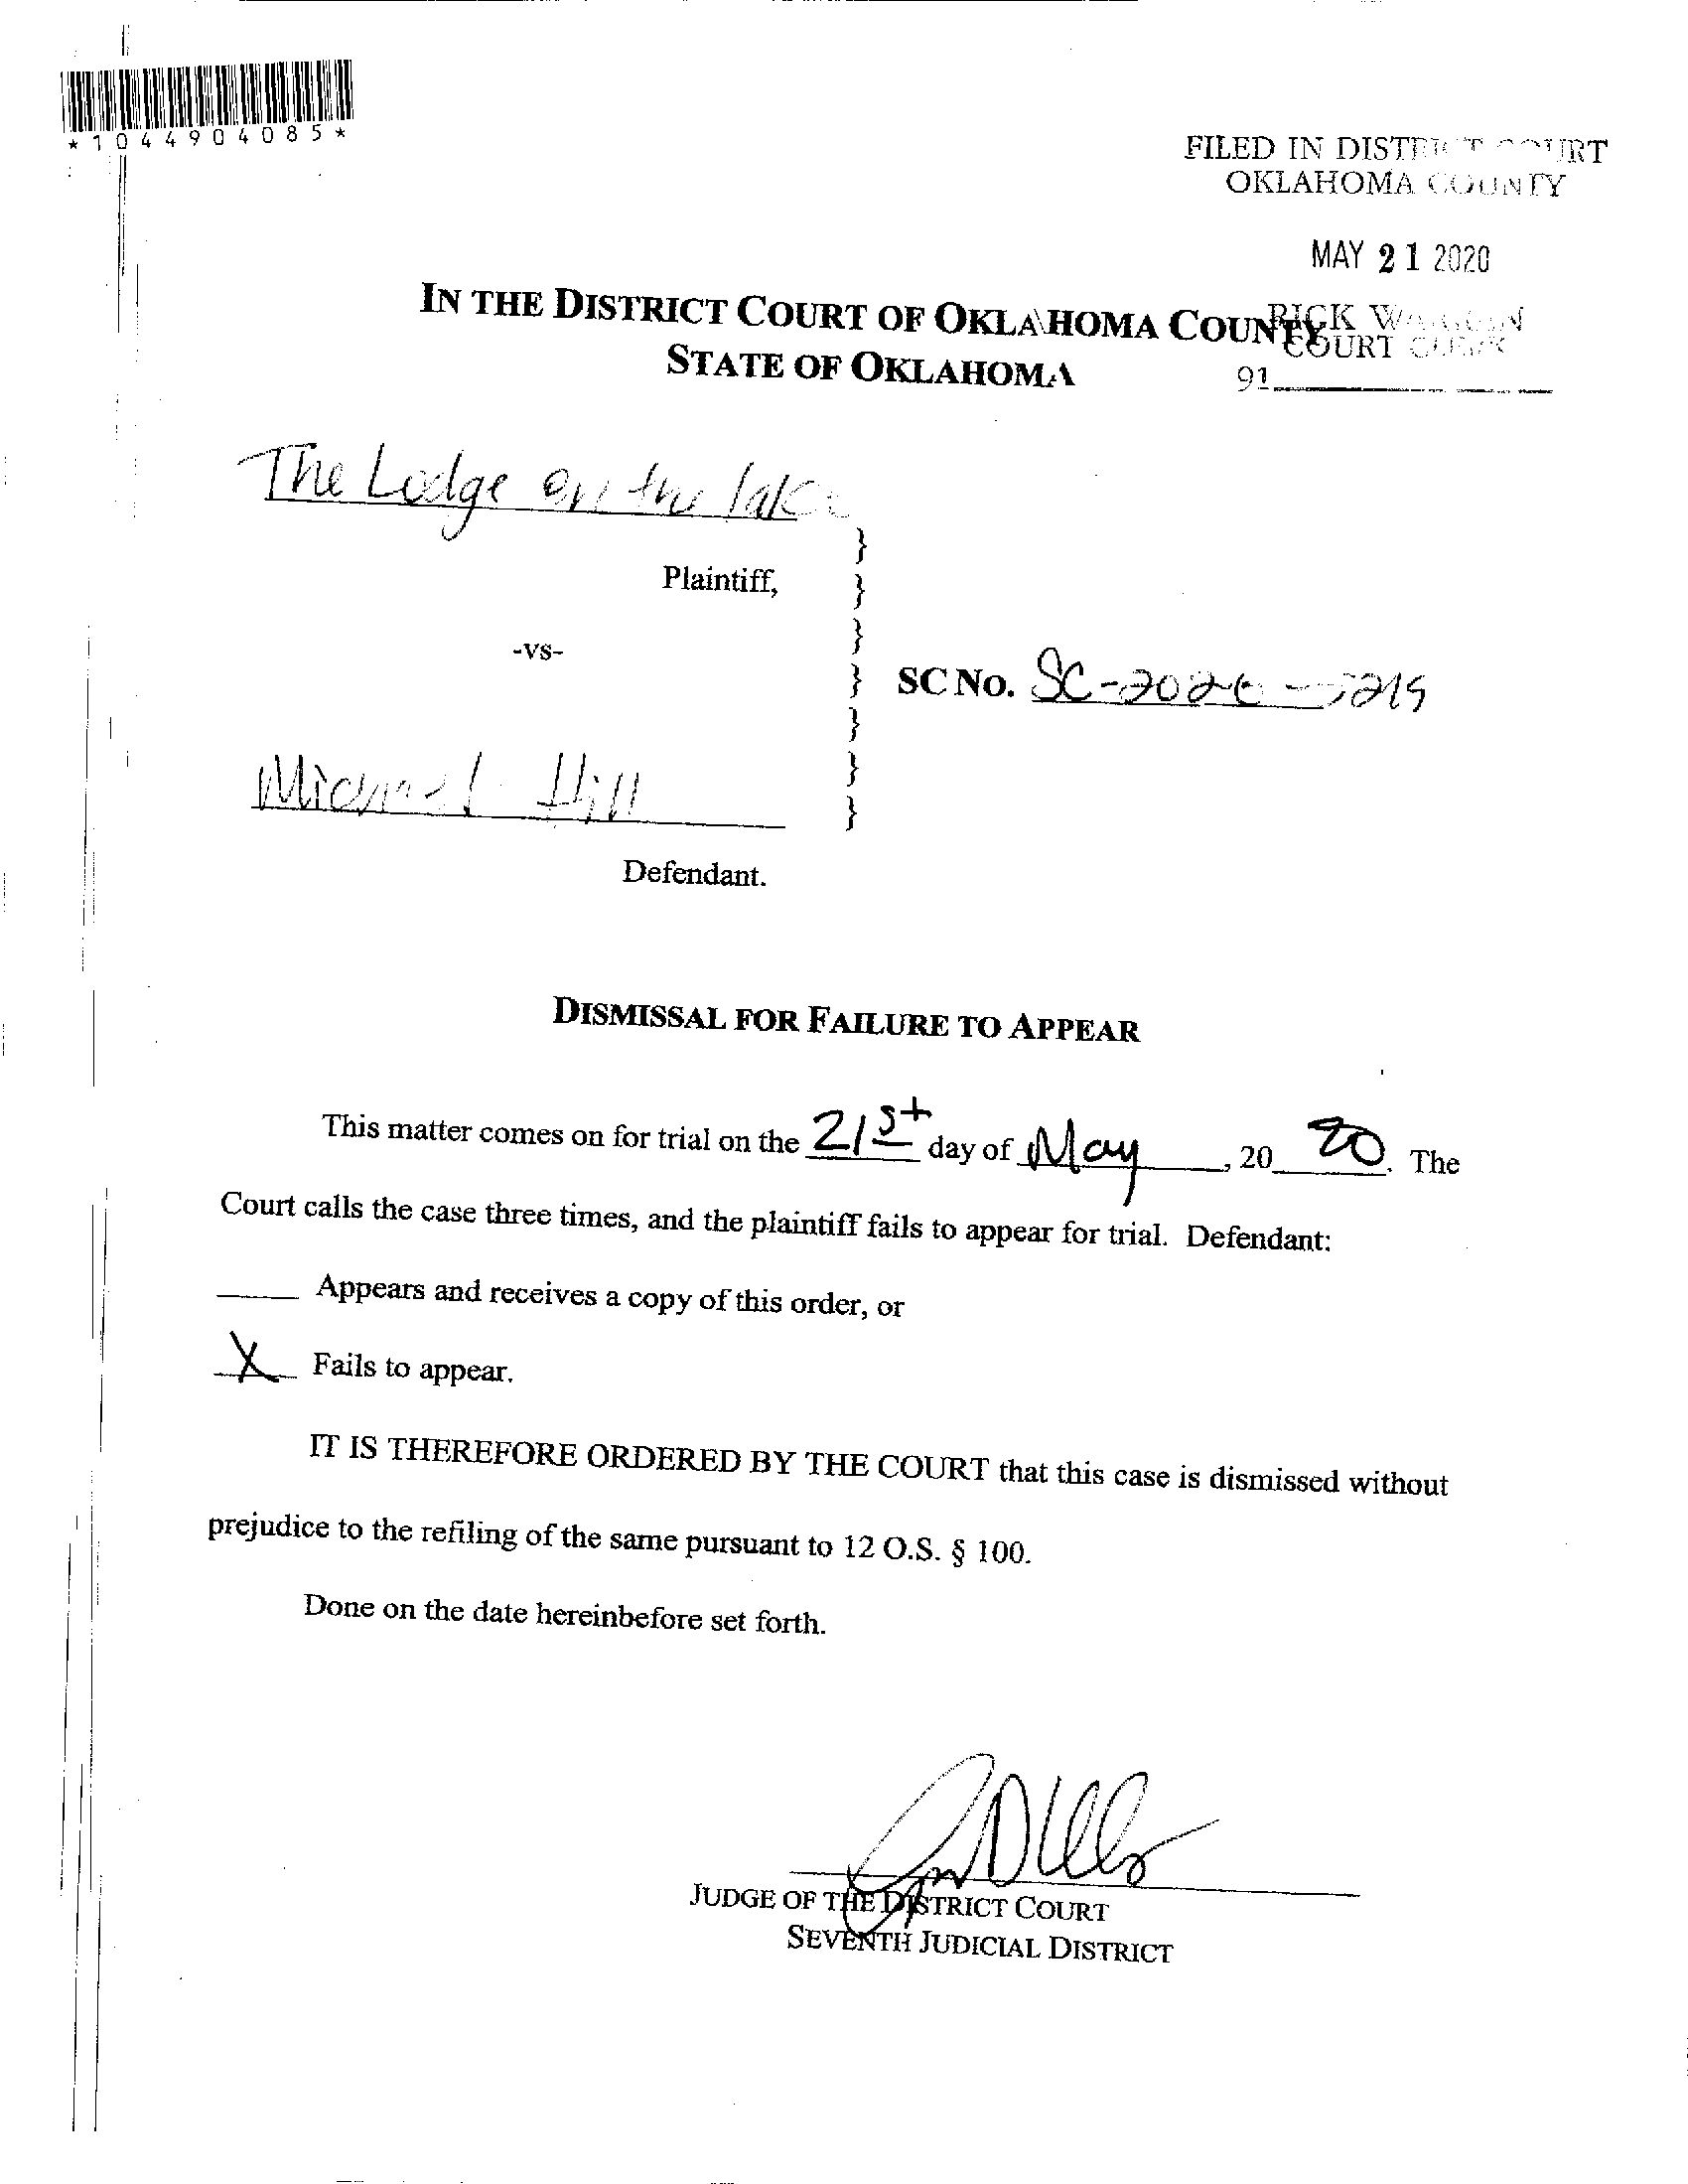 *1044904085*
FILED IN DISTRICT COURT
OKLAHOMA COUNTY
MAY 21 2020
IN THE DISTRICT COURT OF OKLAHOMA COUNTY
RICK
COURT CLERK
STATE OF OKLAHOMA
91
The Lodge on the lake
Plaintiff,
-vs-
SC No. SC-2020-
Michael Hill
Defendant.
DISMISSAL FOR FAILURE TO APPEAR
This matter comes on for trial on the 21st day of May, 20 20. The
Court calls the case three times, and the plaintiff fails to appear for trial. Defendant:
Appears and receives a copy of this order, or
X Fails to appear.
IT IS THEREFORE ORDERED BY THE COURT that this case is dismissed without
prejudice to the refiling of the same pursuant to 12 O.S. § 100.
Done on the date hereinbefore set forth.
JUDGE OF THE DISTRICT COURT
SEVENTH JUDICIAL DISTRICT